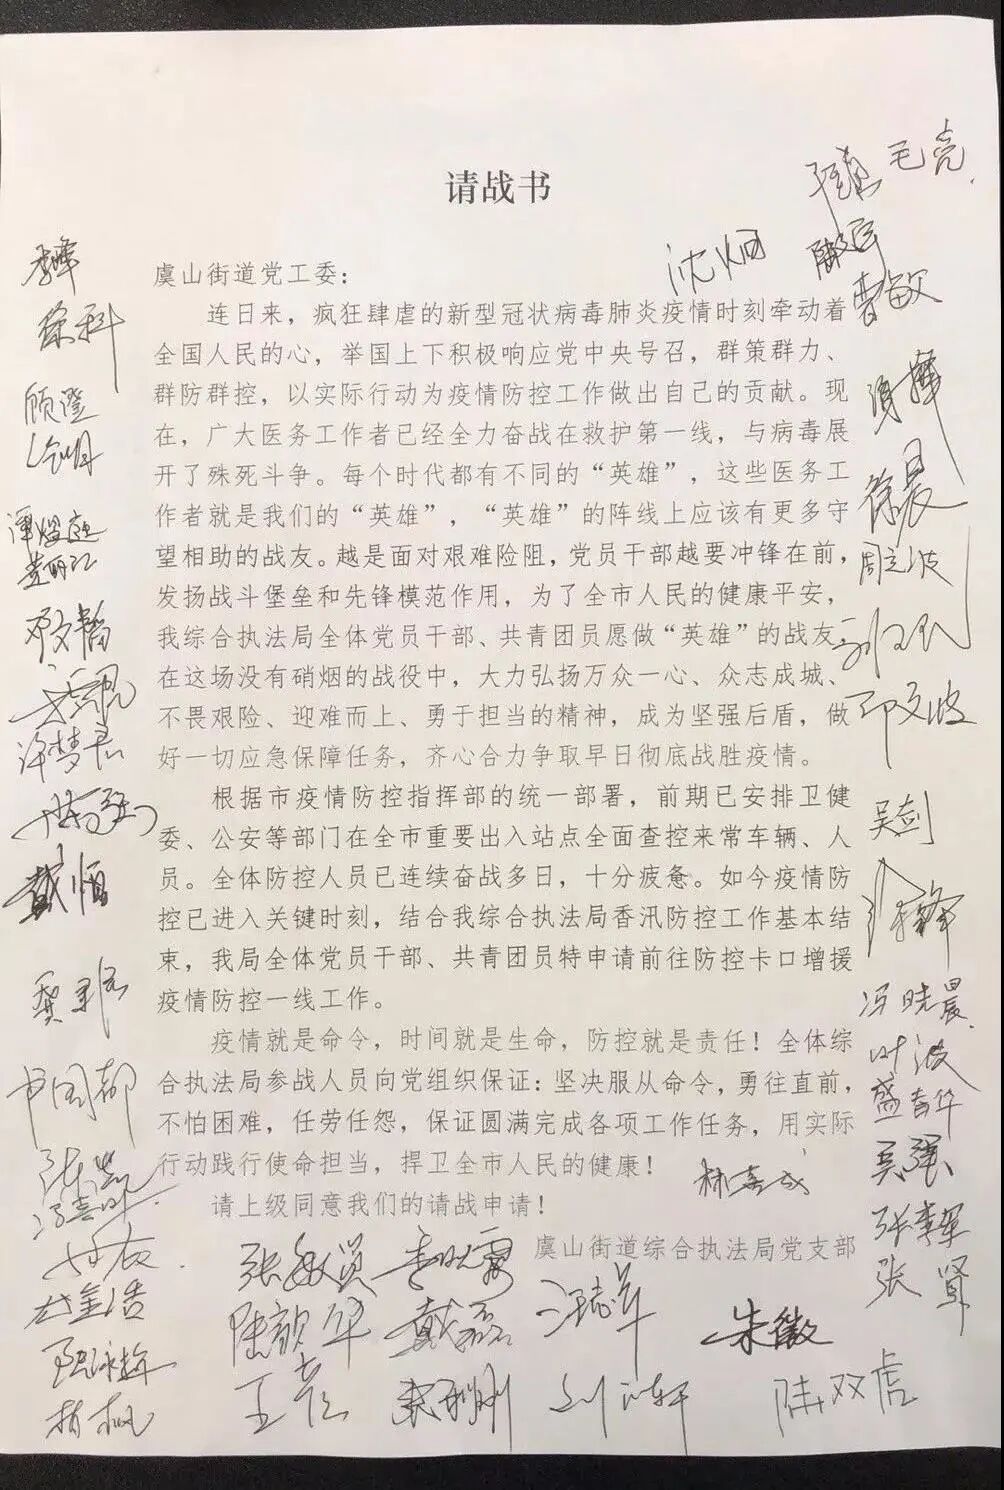 请战书
虞山街道党工委：
连日来，疯狂肆虐的新型冠状病毒肺炎疫情时刻牵动着
全国人民的心，举国上下积极响应党中央号召，群策群力、
群防群控，以实际行动为疫情防控工作做出自己的贡献。现
在，广大医务工作者已经全力奋战在救护第一线，与病毒展
开了殊死斗争。每个时代都有不同的“英雄”，这些医务工
作者就是我们的“英雄”，“英雄”的阵线上应该有更多守
望相助的战友。越是面对艰难险阻，党员干部越要冲锋在前，
发扬战斗堡垒和先锋模范作用，为了全市人民的健康平安，
我综合执法局全体党员干部、共青团员愿做“英雄”的战友，
在这场没有硝烟的战役中，大力弘扬万众一心、众志成城、
不畏艰险、迎难而上、勇于担当的精神，成为坚强后盾，做
好一切应急保障任务，齐心合力争取早日彻底战胜疫情。
根据市疫情防控指挥部的统一部署，前期已安排卫健
委、公安等部门在全市重要出入站点全面查控来常车辆、人
员。全体防控人员已连续奋战多日，十分疲惫。如今疫情防
控已进入关键时刻，结合我综合执法局香汛防控工作基本结
束，我局全体党员干部、共青团员特申请前往防控卡口增援
疫情防控一线工作。
疫情就是命令，时间就是生命，防控就是责任！全体综
合执法局参战人员向党组织保证：坚决服从命令，勇往直前，
不怕困难，任劳任怨，保证圆满完成各项工作任务，用实际
行动践行使命担当，捍卫全市人民的健康！
请上级同意我们的请战申请！
虞山街道综合执法局党支部
毛亮
曹敏
徐晨
周立波
邓文波
吴剑
冯晓晨
叶波
盛春华
吴强
张李军
张贤
徐科
顾澄
邓文韬
许梦君
戴恒
戴磊
王彦
朱徽
陆双虎